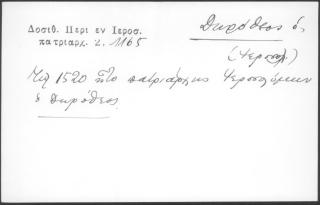 Δοσιθ. Περι εν Ιεροσ.
πατριαρχ. 2. 1165
Δωρόθεος ὁ,
(Ἱεροσολ.)
1520 πατριάρχης Ἱεροσολύμων
ὁ Δωρόθεος